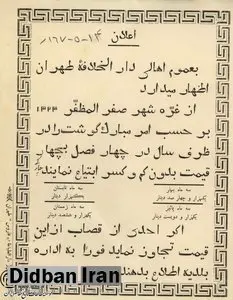 ۱۶۷-۵-۲۴
اعلان
بعموم اهالی دار الخلافهٔ طهران
اظهار میدارد
از غرّه شهر صفر المظفّر ۱۳۲۴
بر حسب امر مبارک گوشت را در
ظرف سال در چهار فصل بچهار
قیمت بدون کم و کسر ابتیاع نمایند
سه ماه بهار
یکهزار و چهار صد دینار
سه ماه تابستان
یکهزار دینار
سه ماه پائیز
یکهزار و دویست دینار
سه ماه زمستان
یکهزار و ششصد دینار
اگر احدی از قصاب از این
قیمت تجاوز نماید فوراً به اداره
بلدیه اطلاع بدهند
Didban Iran